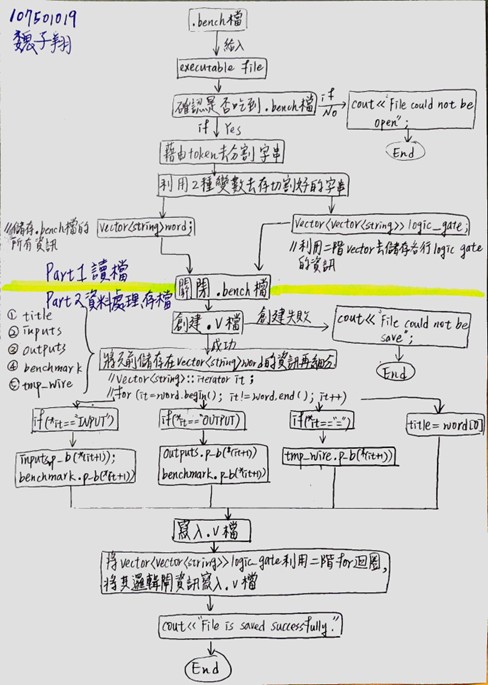 107501019
魏子翔
.bench檔
給入
executable file
確認是否吃到.bench檔
if No
cout<<"File could not be
open";
End
if Yes
藉由token去分割字串
利用2種變數去存切割好的字串
//儲存.bench檔的
所有資訊
vector<string>word;
vector<vector<string>> logic_gate;
//利用二階vector去儲存各行logic gate
的資訊
Part1 讀檔
關閉.bench檔
Part2 資料處理、存檔
① title
② inputs
③ outputs
④ benchmark
⑤ tmp_wire
創建.v檔
創建失敗
cout<<"File could not be
save";
End
成功
將先前儲存在vector<string>word的資訊再細分
//vector<string>::iterator it;
//for(it=word.begin(); it!=word.end(); it++)
if(*it=="INPUT")
if(*it=="OUTPUT)
if(*it=="=")
title=word[0]
inputs.p_b(*(it+1));
benchmark.p_b(*(it+1))
outputs.p_b(*(it+1))
benchmark.p_b(*(it+1))
tmp_wire.p_b(*(it-1))
寫入.v檔
將vector<vector<string>>logic_gate利用二階for迴圈,
將其邏輯閘資訊寫入.v檔
cout<<"File is saved successfully."
End